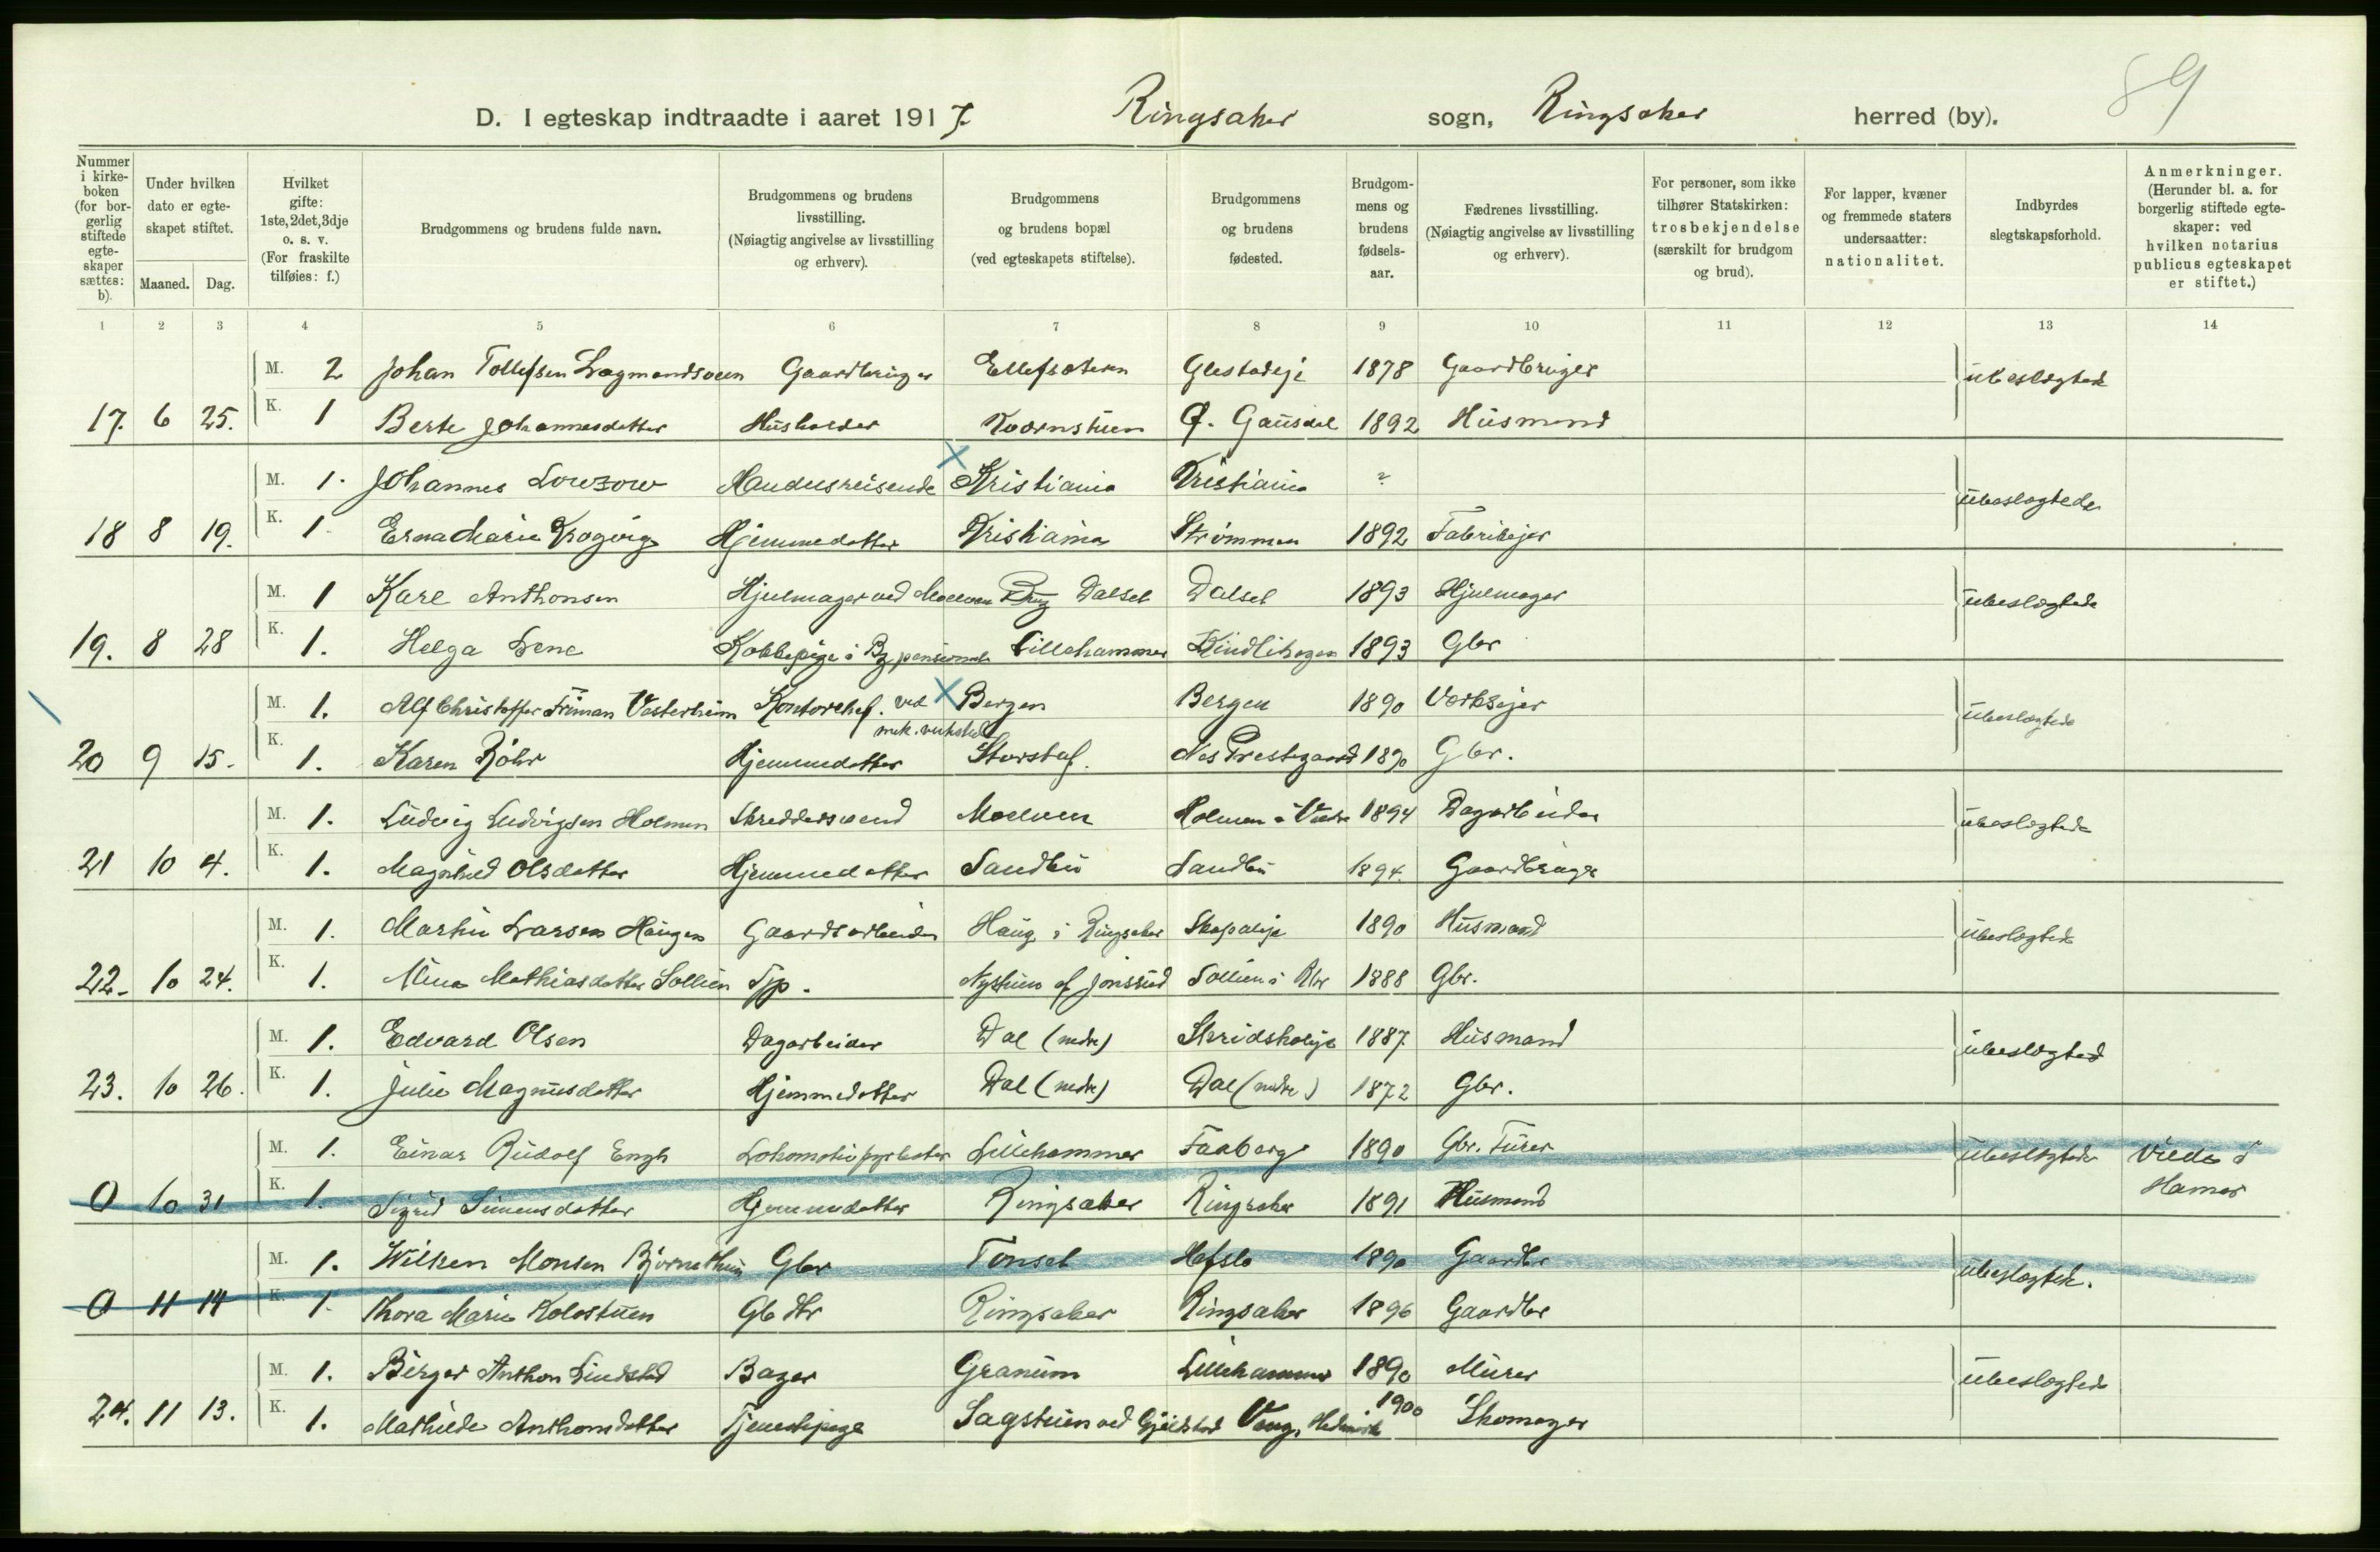 89
D. I egteskap indtraadte i aaret 1917. Ringsaker sogn, Ringsaker herred (by).
Nummer i kirkeboken (for borgerlig stiftede egteskaper sættes: b).
Under hvilken dato er egteskapet stiftet.
Maaned. Dag.
Hvilket gifte: 1ste, 2det, 3dje o. s. v. (For fraskilte tilføies: f.)
Brudgommens og brudens fulde navn.
Brudgommens og brudens livsstilling. (Nøiagtig angivelse av livsstilling og erhverv).
Brudgommens og brudens bopæl (ved egteskapets stiftelse).
Brudgommens og brudens fødested.
Brudgommens og brudens fødselsaar.
Fædrenes livsstilling. (Nøiagtig angivelse av livsstilling og erhverv).
For personer, som ikke tilhører Statskirken: trosbekjendelse (særskilt for brudgom og brud).
For lapper, kvæner og fremmede staters undersaatter: nationalitet.
Indbyrdes slegtskapsforhold.
Anmerkninger. (Herunder bl. a. for borgerlig stiftede egteskaper: ved hvilken notarius publicus egteskapet er stiftet.)
1 2 3 4 5 6 7 8 9 10 11 12 13 14
M. 2 Johan Tollefsen Lagmandsveen Gaardbruger Glestadeje 1878 Gaardbruger ubeslægtede
17. 6 25. K. 1 Berte Johannesdatter Husholder Kvernstuen Ø. Gausdal 1892 Husmand
M. 1. Johannes Lowzow Handelsreisende Kristiania Kristiania ? ubeslægtede
18 8 19. K. 1. Erna Marie Krogvig Hjemmedatter Kristiania Strømmen 1892 Fabrikejer
M. 1 Karl Anthonsen Hjulmager ved Moelven Brug Dalsel Dalsel 1893 Hjulmager ubeslægtede
19. 8 28 K. 1. Helga Lene Kokkepige i pensionat Lillehammer Kindlihagen 1893 Gbr
M. 1. Alf Christoffer Friman Vesterheim Kontorchef. ved Bergen Bergen 1890 Værksejer ubeslægtede
mek. verksted
20 9 15. K. 1. Karen Röhr Hjemmedatter Storstaf. Nes Prestegaard 1890 Gbr.
M. 1. Ludvig Ludvigsen Holmen Skreddersvend Moelven Holmen i Vardal 1894 Dagarbeider ubeslægtede
21 10 4. K. 1. Magnhild Olsdatter Hjemmedatter Sandbu Sandbu 1894. Gaardbruger
M. 1. Martin Larsen Haugen Gaardsarbeider Haug i Ringsaker 1890 Husmand ubeslægtede
22. 10 24. K. 1. Alma Mathiasdatter Sollien Tjp. Nystuen af Jønsrud Sollien i Rbr 1888 Gbr.
M. 1. Edvard Olsen Dagarbeider Dal (nedre) Skridsholeje 1887. Husmand ubeslægtede
23. 10 26. K. 1. Julie Magnusdatter Hjemmedatter Dal (nedre) Dal (nedre) 1872 Gbr.
M. 1. Einar Rudolf Engh Lokomotivfyrbøter Lillehammer Faaberg 1890 Gbr. Furer ubeslægtede Viede i
0 10 31 K. 1. Sigrid Simensdatter Hjemmedatter Ringsaker Ringsaker 1891 Husmand Hamar
M. 1. Wilken Monsen Bjørnethun Gbr Tönset Hafslo 1890 Gaardbr ubeslægtede.
0 11 14 K. 1. Thora Marie Kolostuen Gbdtr Ringsaker Ringsaker 1896 Gaardbr
M. 1. Birger Anthon Lindstad Bager Granum Lillehammer 1890 Murer ubeslægtede
24. 11 13. K. 1. Mathilde Anthonsdatter Tjenestepige Sagstuen ved Gjeldstad Vang, Hedmark 1900 Skomager